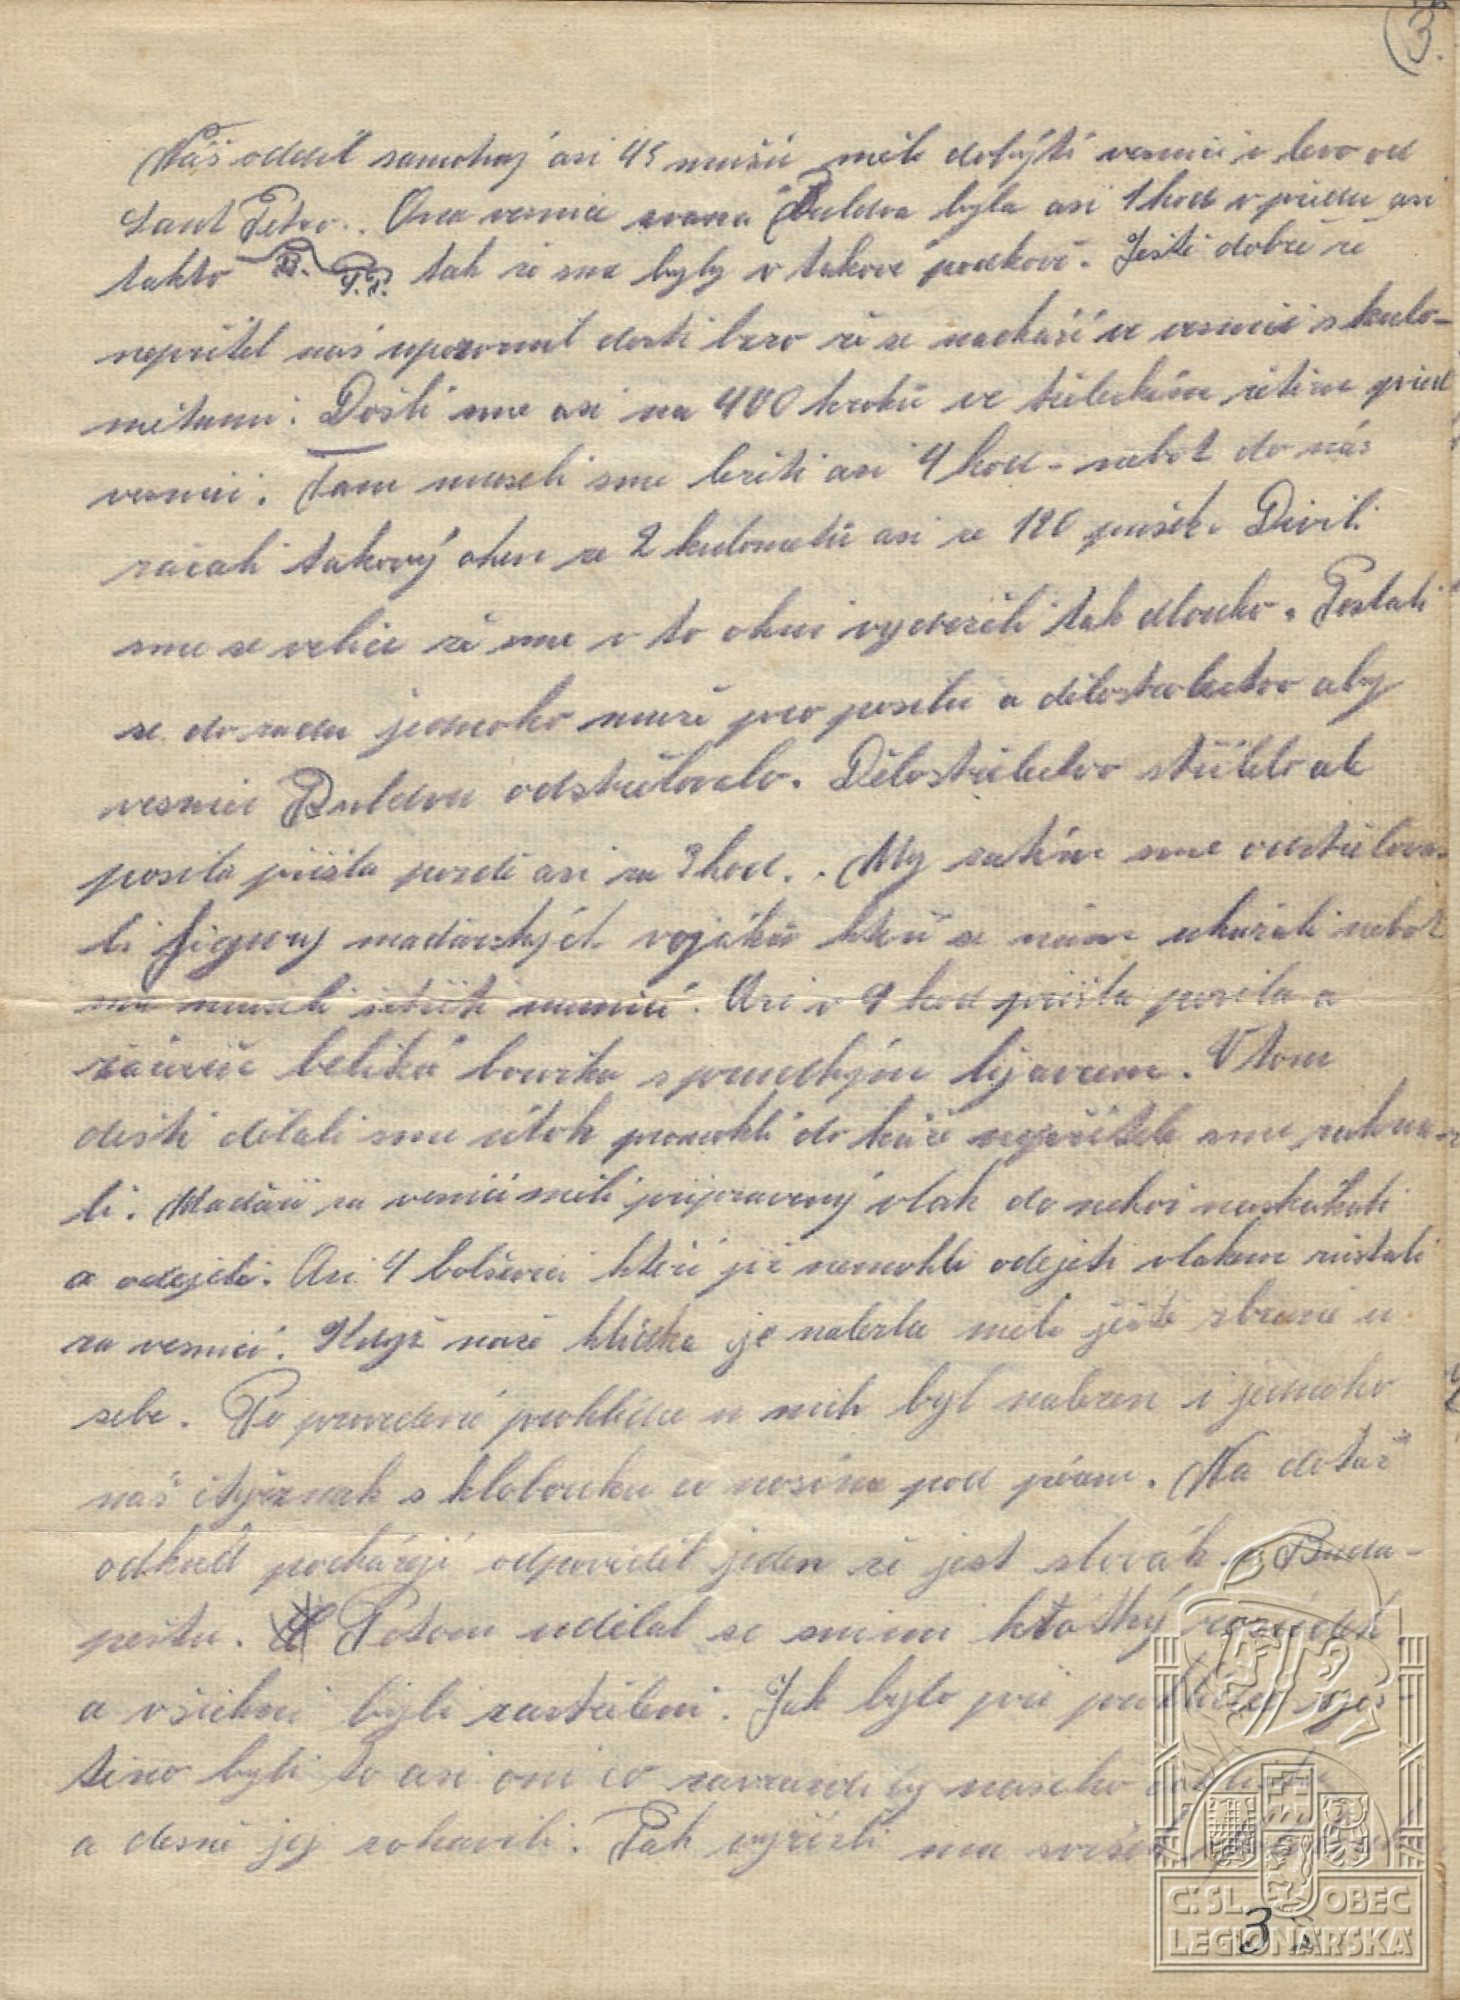 3.
Náš oddíl samotný asi 45 mužů měli dobýti vesnici v levo od
Sant Petro.. Ona vesnice zvaná Buldva byla asi 1 hod v předu asi
takto B. P.P. tak že sme byly v takové podkově. Ještě dobře že
nepřítel nás upozornil dosti brzo že se nachází ve vesnici s kulo-
metami. Došli sme asi na 400 kroků ve střeleckém řetězu před
vesnici. Tam museli sme ležeti asi 4 hod - neboť do nás
začali takový oheň ze 2 kulometů asi ze 120 pušek. Divili
sme se velice že sme v to ohni vydrželi tak dlouho. Poslali
se do zadu jednoho muže pro posilu a dělostřelectvo aby
vesnici Buldvu odstřelovalo. Dělostřelectvo střílelo ale
posila přišla pozdě asi za 2 hod.. My zatím sme odstřelova-
li figury maďarských vojáků kteří se nám ukázali neboť
sme museli šetřiti municí. Asi v 9 hod přišla posila a
zároveň veliká bouřka s prudkým lijavcem. V tom
dešti dělali sme útok promoklí do kůže nepřítele sme zahna-
li. Maďaři za vesnicí měli připravený vlak do nehož naskákali
a odejeli. Asi 4 bolševici kteří již nemohli odejeti vlakem zůstali
za vesnicí. Když naše hlídka je nalezla měli ještě zbraně u
sebe. Po provedené prohlídce u nich byl nalezen i jednoho
náš odznak s klobouku co nosíme pod pérem. Na dotaz
odkud pocházejí odpověděl jeden že jest slovák z Buda-
peštu. Potom udělal se snimi krátký
a všichni byli zastřeleni. Jak bylo při zjiš-
těno byli to asi oni co zavraždily našeho
a děsně jej zohavili. Tak vyřízli mu
3
Č.SL. OBEC
LEGIONÁŘSKÁ